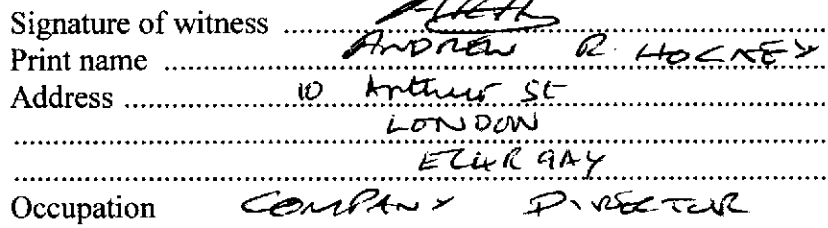 Signature of witness ..........
Print name .......... ANDREW R. HOCKEY
Address .......... 10 Arthur St
LONDON
EC4R 9AY
Occupation COMPANY DIRECTOR